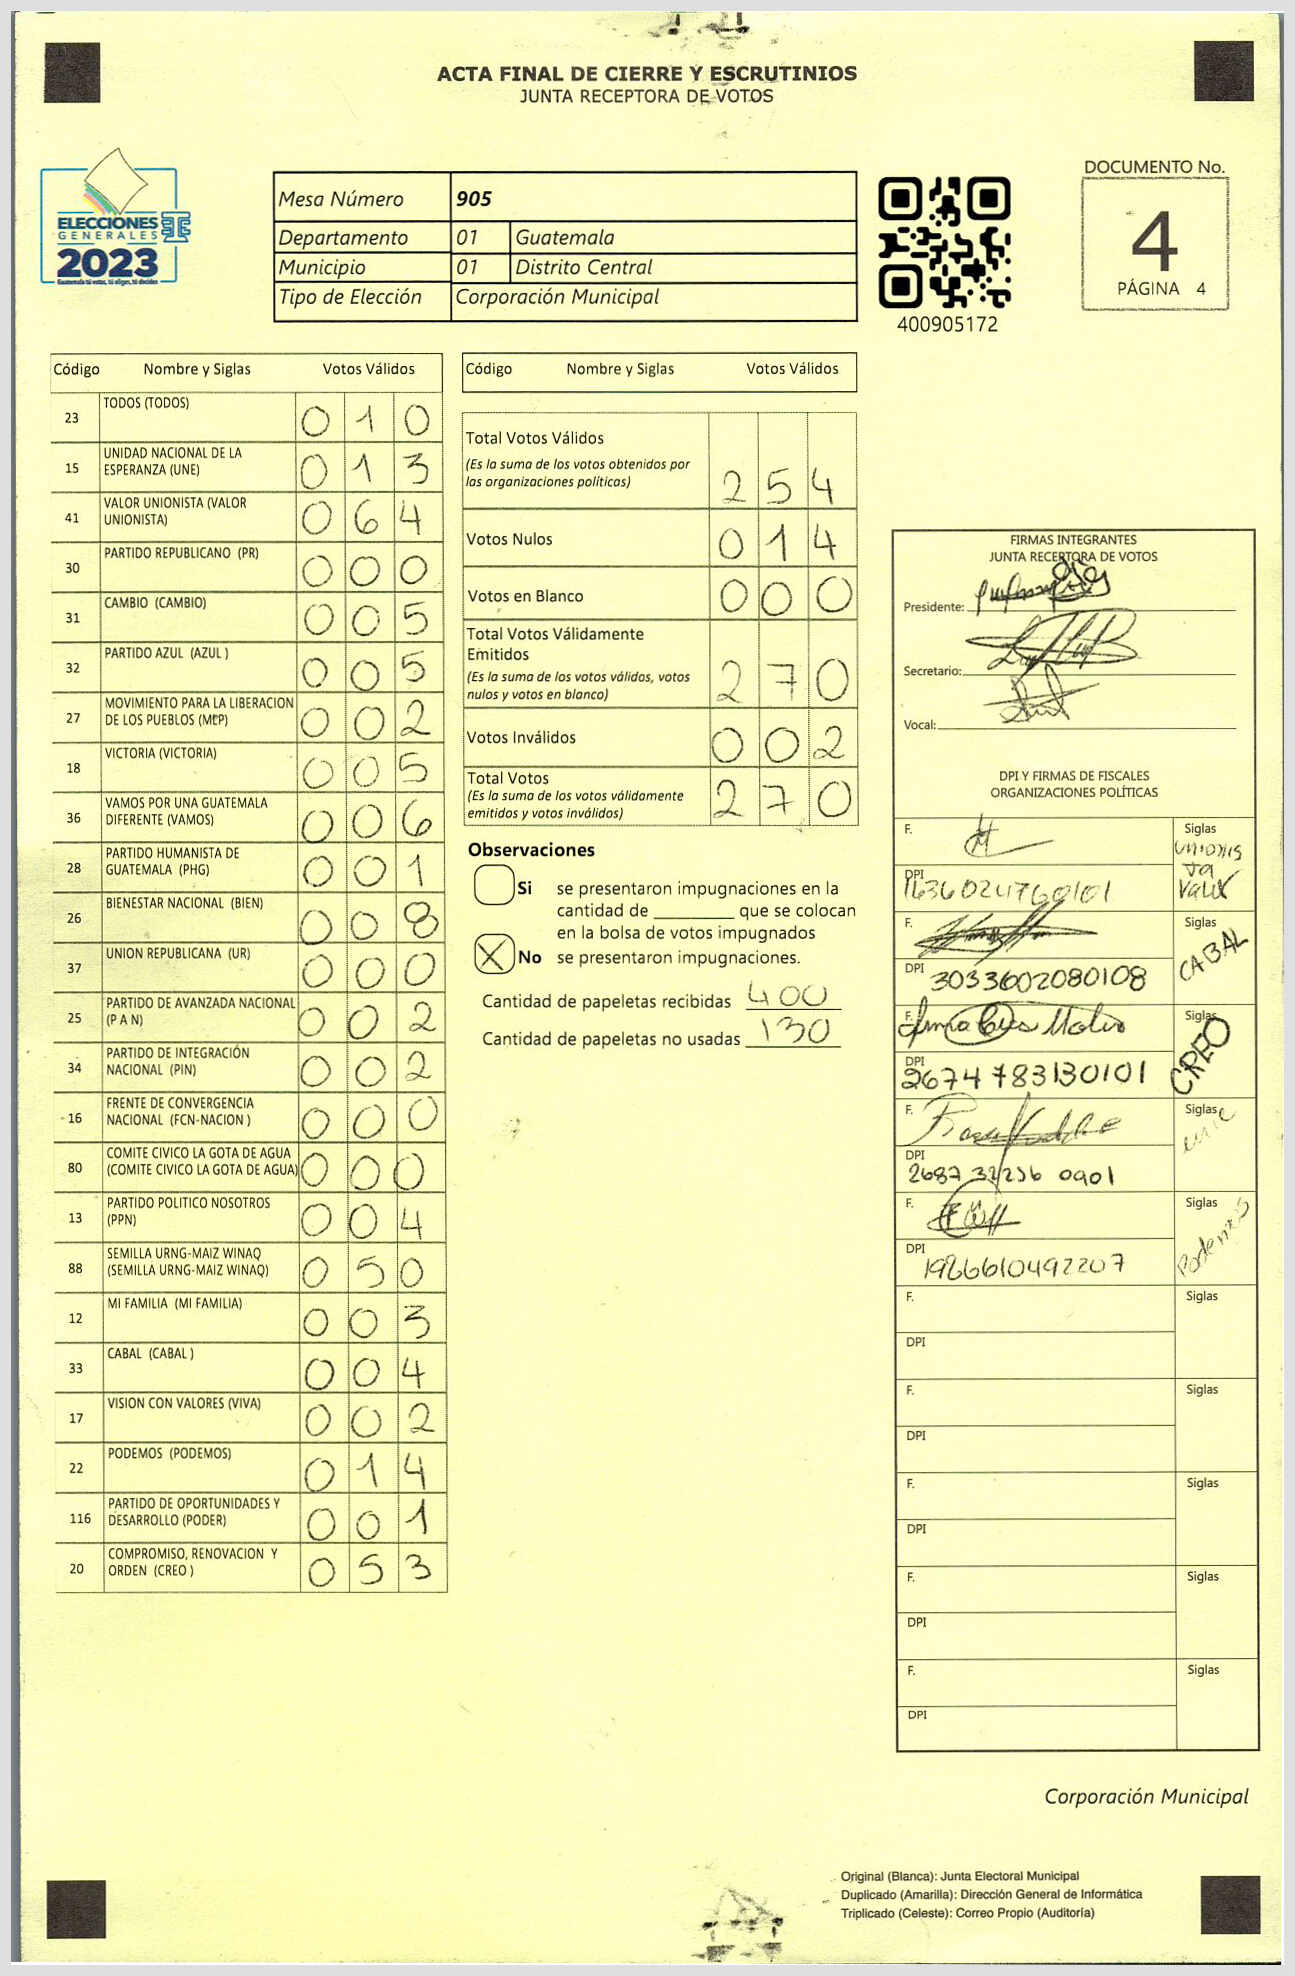 ACTA FINAL DE CIERRE Y ESCRUTINIOS
JUNTA RECEPTORA DE VOTOS
ELECCIONES
GENERALES
2023
Guatemala tú votas, tú eliges, tú decides
Mesa Número 905
Departamento 01 Guatemala
Municipio 01 Distrito Central
Tipo de Elección Corporación Municipal
400905172
DOCUMENTO No.
4
PÁGINA 4
Código Nombre y Siglas Votos Válidos
23 TODOS (TODOS) 0 1 0
15 UNIDAD NACIONAL DE LA
ESPERANZA (UNE) 0 1 3
41 VALOR UNIONISTA (VALOR
UNIONISTA) 0 6 4
30 PARTIDO REPUBLICANO (PR) 0 0 0
31 CAMBIO (CAMBIO) 0 0 5
32 PARTIDO AZUL (AZUL ) 0 0 5
27 MOVIMIENTO PARA LA LIBERACION
DE LOS PUEBLOS (MLP) 0 0 2
18 VICTORIA (VICTORIA) 0 0 5
36 VAMOS POR UNA GUATEMALA
DIFERENTE (VAMOS) 0 0 6
28 PARTIDO HUMANISTA DE
GUATEMALA (PHG) 0 0 1
26 BIENESTAR NACIONAL (BIEN) 0 0 8
37 UNION REPUBLICANA (UR) 0 0 0
25 PARTIDO DE AVANZADA NACIONAL
(P A N) 0 0 2
34 PARTIDO DE INTEGRACIÓN
NACIONAL (PIN) 0 0 2
16 FRENTE DE CONVERGENCIA
NACIONAL (FCN-NACION ) 0 0 0
80 COMITE CIVICO LA GOTA DE AGUA
(COMITE CIVICO LA GOTA DE AGUA) 0 0 0
13 PARTIDO POLITICO NOSOTROS
(PPN) 0 0 4
88 SEMILLA URNG-MAIZ WINAQ
(SEMILLA URNG-MAIZ WINAQ) 0 5 0
12 MI FAMILIA (MI FAMILIA) 0 0 3
33 CABAL (CABAL ) 0 0 4
17 VISION CON VALORES (VIVA) 0 0 2
22 PODEMOS (PODEMOS) 0 1 4
116 PARTIDO DE OPORTUNIDADES Y
DESARROLLO (PODER) 0 0 1
20 COMPROMISO, RENOVACION Y
ORDEN (CREO ) 0 5 3
Código Nombre y Siglas Votos Válidos
Total Votos Válidos
(Es la suma de los votos obtenidos por
las organizaciones políticas) 2 5 4
Votos Nulos 0 1 4
Votos en Blanco 0 0 0
Total Votos Válidamente
Emitidos
(Es la suma de los votos válidos, votos
nulos y votos en blanco) 2 7 0
Votos Inválidos 0 0 2
Total Votos
(Es la suma de los votos válidamente
emitidos y votos inválidos) 2 7 0
Observaciones
Si se presentaron impugnaciones en la
cantidad de ________ que se colocan
en la bolsa de votos impugnados
X No se presentaron impugnaciones.
Cantidad de papeletas recibidas 400
Cantidad de papeletas no usadas 130
FIRMAS INTEGRANTES
JUNTA RECERTORA DE VOTOS
Presidente:
Secretario:
Vocal:
DPI Y FIRMAS DE FISCALES
ORGANIZACIONES POLÍTICAS
F. Siglas
Unionis
ta
Valor
DPI 1636024760101
F. Siglas CABAL
DPI 3033602080108
F. Siglas CREO
DPI 2674783130101
F. Siglas
DPI 2687 32256 0901
F. Siglas Podemos
DPI 1966610492207
F. Siglas
DPI
F. Siglas
DPI
F. Siglas
DPI
F. Siglas
DPI
F. Siglas
DPI
Corporación Municipal
Original (Blanca): Junta Electoral Municipal
Duplicado (Amarilla): Dirección General de Informática
Triplicado (Celeste): Correo Propio (Auditoría)